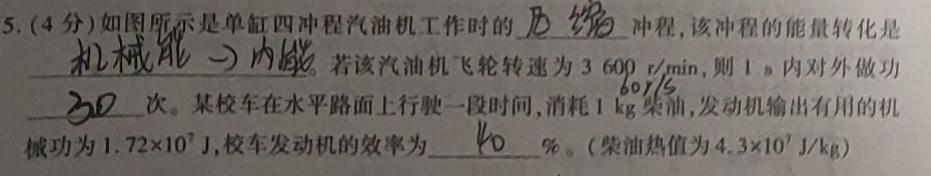 5.(4分)如图所示是单缸四冲程汽油机工作时的 压缩 冲程,该冲程的能量转化是
机械能→内能。若该汽油机飞轮转速为 3 600 r/min,则 1 s 内对外做功
60r/s
30 次。某校车在水平路面上行驶一段时间,消耗 1 kg 柴油,发动机输出有用的机
械功为 1.72×10⁷ J,校车发动机的效率为 40 %。(柴油热值为 4.3×10⁷ J/kg)